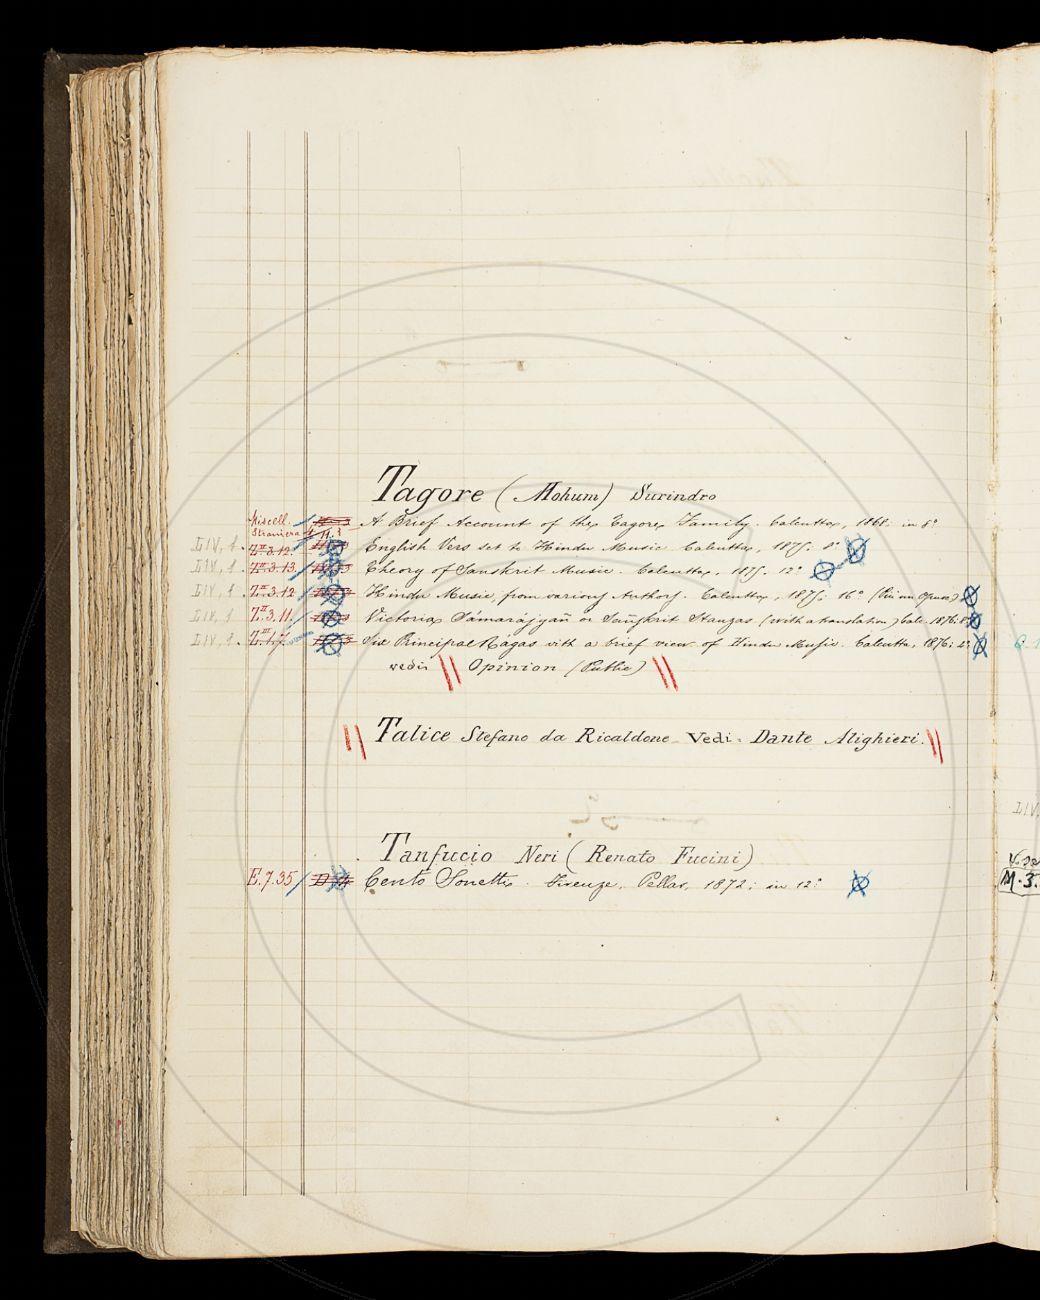 Tagore (Mohum) Surindro
Miscell. A Brief Account of the Tagore Family. Calcutta, 1868: in 8°
Straniera 4. H. 3
LIV, 1. Z.II 3.12. English Vers set to Hindu Music Calcutta, 1875. 8°
LIV, 1. Z.II 3.13. Theory of Sanskrit Music. Calcutta, 1875. 12°
LIV, 1. Z.II 3.12 Hindu Music, from various Authors. Calcutta, 1875: 16°
LIV, 1. Z.II 3.11. Victoria Sámarajyañ or Sanskrit Stanzas (with a translation) Calc. 1876: 8°
LIV, 1. Z.III 1.7. Six Principal Ragas with a brief view of Hindu Music. Calcutta, 1876:
vedi Opinion (Public)
Talice Stefano da Ricaldone Vedi. Dante Alighieri.
Tanfucio Neri (Renato Fucini)
E.7.35 Cento Sonetti. Firenze, Pellas, 1872; in 12°
LIV.
M.3.